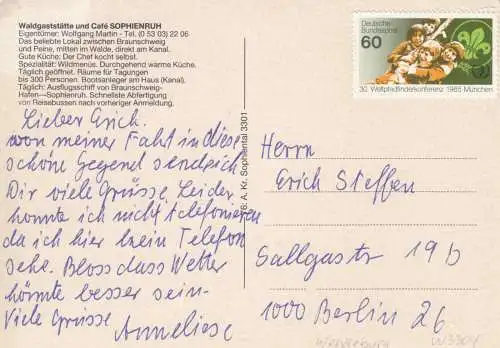 Waldgaststätte und Café SOPHIENRUH
Eigentümer: Wolfgang Martin - Tel. (0 53 03) 22 06
Das beliebte Lokal zwischen Braunschweig
und Peine, mitten im Walde, direkt am Kanal.
Gute Küche: Der Chef kocht selbst.
Spezialität: Wildmenüs. Durchgehend warme Küche.
Täglich geöffnet. Räume für Tagungen
bis 300 Personen. Bootsanleger am Haus (Kanal).
Täglich: Ausflugsschiff von Braunschweig-
Hafen—Sophienruh. Schnellste Abfertigung
von Reisebussen nach vorheriger Anmeldung.
Lieber Erich.
von meiner Fahrt in diese
schöne Gegend sende ich
Dir viele Grüsse. Leider
konnte ich nicht telefonieren
da ich hier kein Telefon
sehe. Bloss dass Wetter
könnte besser sein-
Viele Grüsse
Anneliese
76: A. Kr. Sophiental 3301
Deutsche
Bundespost
60
30. Weltpfadfinderkonferenz 1985 München
Herrn
Erich Steffen
Sallgastr 19b
1000 Berlin 26
W3304